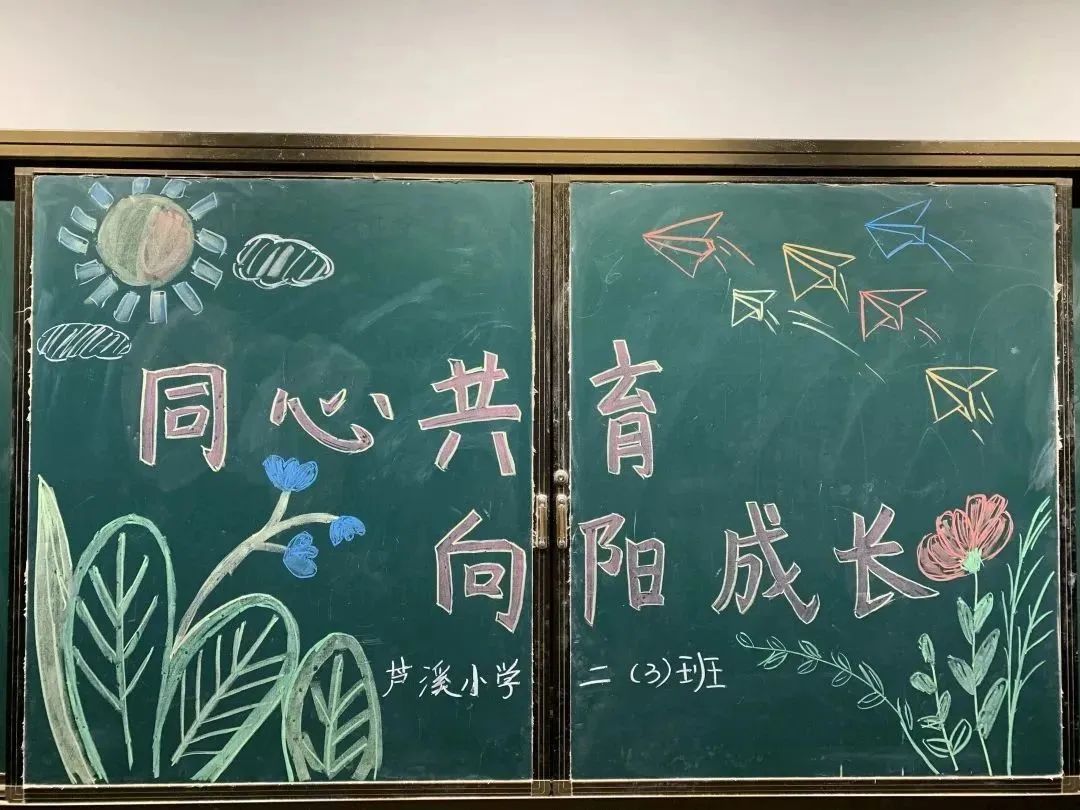 同心共育
向阳成长
芦溪小学 二(3)班